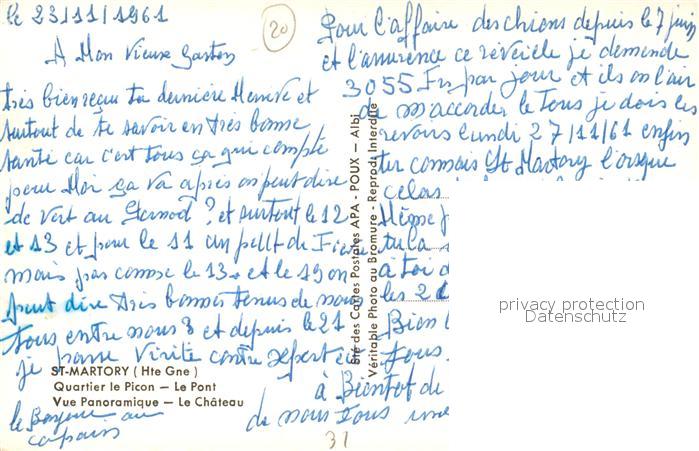 le 23/11/1961
20
A Mon Vieux Gaston
très bien reçu ta dernière et
surtout de te savoir en très bonne
santé car c'est tous ça qui compte
pour Moi ça va après on peut dire
de Vert au ? et surtout le 12
et 13 et pour le 11 un de
mais pas comme le 13 et le 19 on
peut dire très bonnes tenus de nous
tous entre nous 8 et depuis le 21
je passe Visite contre
ST-MARTORY (Hte Gne)
Quartier le Picon — Le Pont
Vue Panoramique — Le Château
le Bonjour au
copains
Sté des Cartes Postales APA - POUX — Albi
Véritable Photo au Bromure - Reprod. Interdite
Pour l'affaire des depuis le 7 juin
et l'assurence ce réveiele je demande
3055 Frs par jour et ils on l'air
de m'accorder le Tous je dois les
revoir lundi 27/11/61 enfin
tu connais St Martory lorsque
celas
Même
tu la
à toi d
les 2
Bien
Tous.
à Bientot de
de nous Tous une
31
privacy protection
Datenschutz